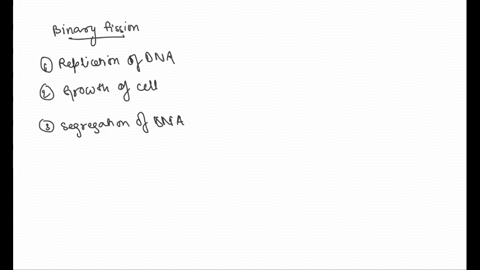 Binary fission
① Replication of DNA
② Growth of cell
③ Segregation of DNA